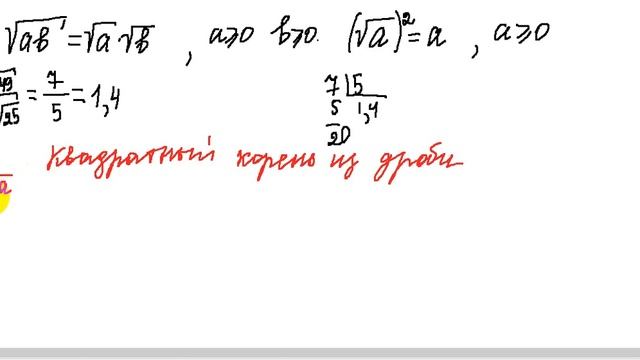 √ab = √a √b , a⩾0 b⩾0. (√a)² = a , a⩾0
√49/√25 = 7/5 = 1,4
7 | 5
5 1,4
20
Квадратный корень из дроби
a